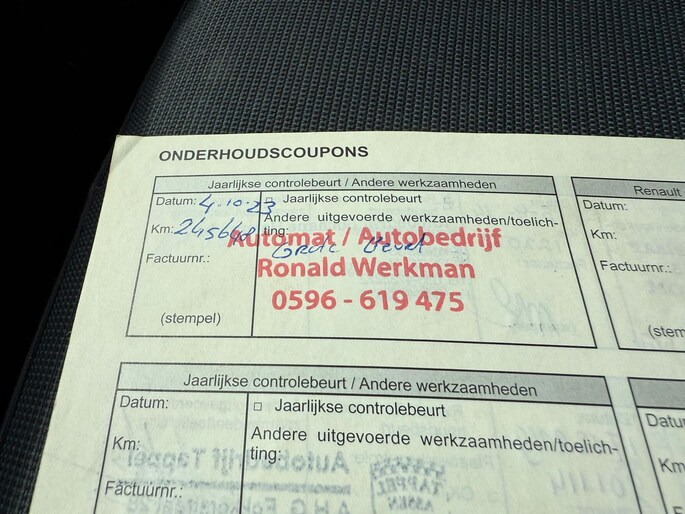 ONDERHOUDSCOUPONS
Jaarlijkse controlebeurt / Andere werkzaamheden
Datum: 4-10-23
□ Jaarlijkse controlebeurt
Andere uitgevoerde werkzaamheden/toelich-
ting:
Km: 245648
Automat / Autobedrijf
Grote Beurt
Factuurnr.:
Ronald Werkman
0596 - 619 475
(stempel)
Renault
Datum:
Km:
Factuurnr.:
(stem
Jaarlijkse controlebeurt / Andere werkzaamheden
Datum:
□ Jaarlijkse controlebeurt
Andere uitgevoerde werkzaamheden/toelich-
ting:
Km:
Factuurnr.:
Datu
Km:
Fact
Autobedrijf Tappel
TAPPEL
ASSEN